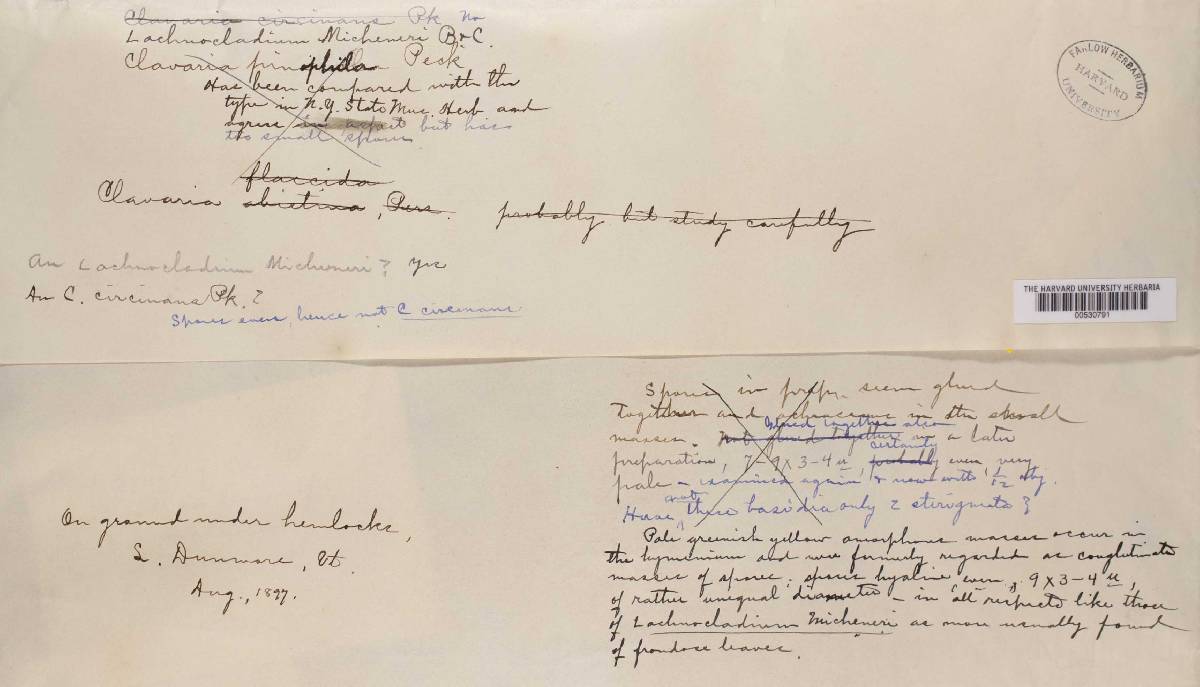 Clavaria circinans Pk No
Lachnocladium Micheneri B & C.
Clavaria pinophila Peck
Has been compared with the
type in N.Y. State Mus. Herb and
agrees in aspect but has
too small spores
flaccida
Clavaria abietina, Pers. probably but study carefully
An Lachnocladium Micheneri? Yes
An C. circinans Pk.?
Spores even, hence not C circinans
FARLOW HERBARIUM
HARVARD
UNIVERSITY
THE HARVARD UNIVERSITY HERBARIA
00530791
On ground under hemlocks,
L. Dunmore, Vt.
Aug., 1897.
Spores in prep. seem glued
together and ochraceous in the small
masses. Not glued together in a later
glued together also
preparation, 7-9x3-4 u, probably even, very
certainly
pale - examined again & now with 1/12 obj.
Have these basidia only 2 sterigmata?
not
Pale greenish yellow amorphous masses occur in
the hymenium and were formerly regarded as conglutinate
masses of spores; spores hyaline, even, 9x3-4 u,
of rather unequal diameter - in all respects like those
of Lachnocladium Micheneri as more usually found
of frondose leaves.